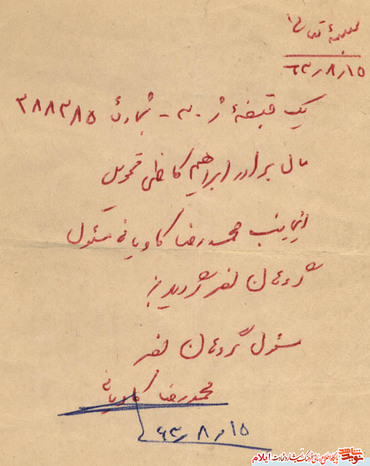 بسمه تعالی
۶۳/۸/۱۵
یک قبضه ژ-۳ - شماره ۳۸۸۳۸۵
مال برادر ابراهیم کاظمی تحویل
اینجانب محمدرضا کاویانی مسئول
گردان نصر گردید
مسئول گردان نصر
محمدرضا کاویانی
۶۳/۸/۱۵